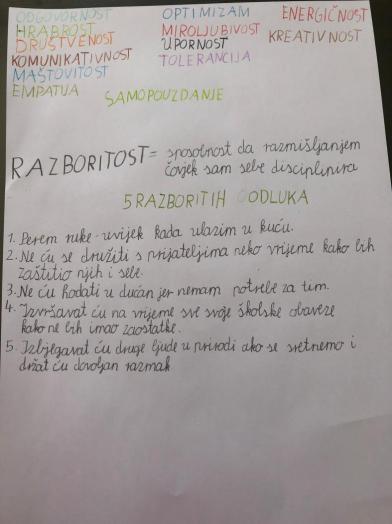 ODGOVORNOST OPTIMIZAM ENERGIČNOST
HRABROST MIROLJUBIVOST
DRUŠTVENOST UPORNOST KREATIVNOST
KOMUNIKATIVNOST TOLERANCIJA
MAŠTOVITOST
EMPATIJA SAMOPOUZDANJE
RAZBORITOST = sposobnost da razmišljanjem
čovjek sam sebe disciplinira
5 RAZBORITIH ODLUKA
1. Perem ruke uvijek kada ulazim u kuću.
2. Ne ću se družiti s prijateljima neko vrijeme kako bih
zaštitio njih i sebe.
3. Ne ću hodati u dućan jer nemam potrebe za tim.
4. Izvršavat ću na vrijeme sve svoje školske obaveze
kako ne bih imao zaostatke.
5. Izbjegavat ću druge ljude u prirodi ako se sretnemo i
držat ću dovoljan razmak